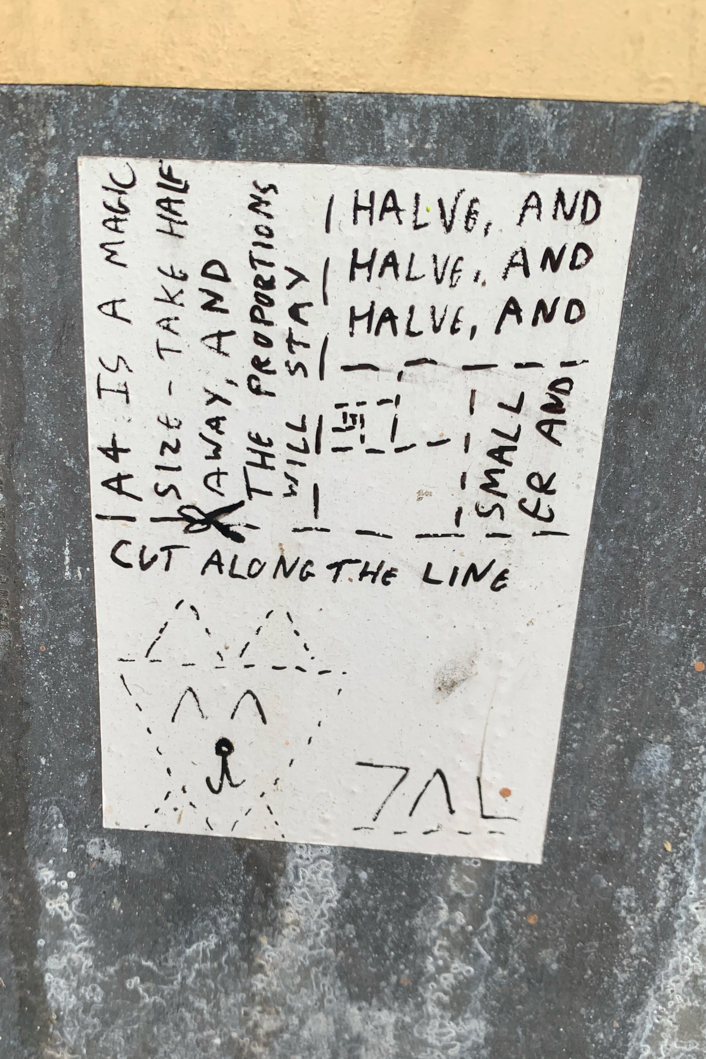 A4 IS A MAGIC
SIZE - TAKE HALF
AWAY, AND
THE PROPORTIONS
WILL STAY
HALVE, AND
HALVE, AND
HALVE, AND
SMALL
ER AND
CUT ALONG THE LINE